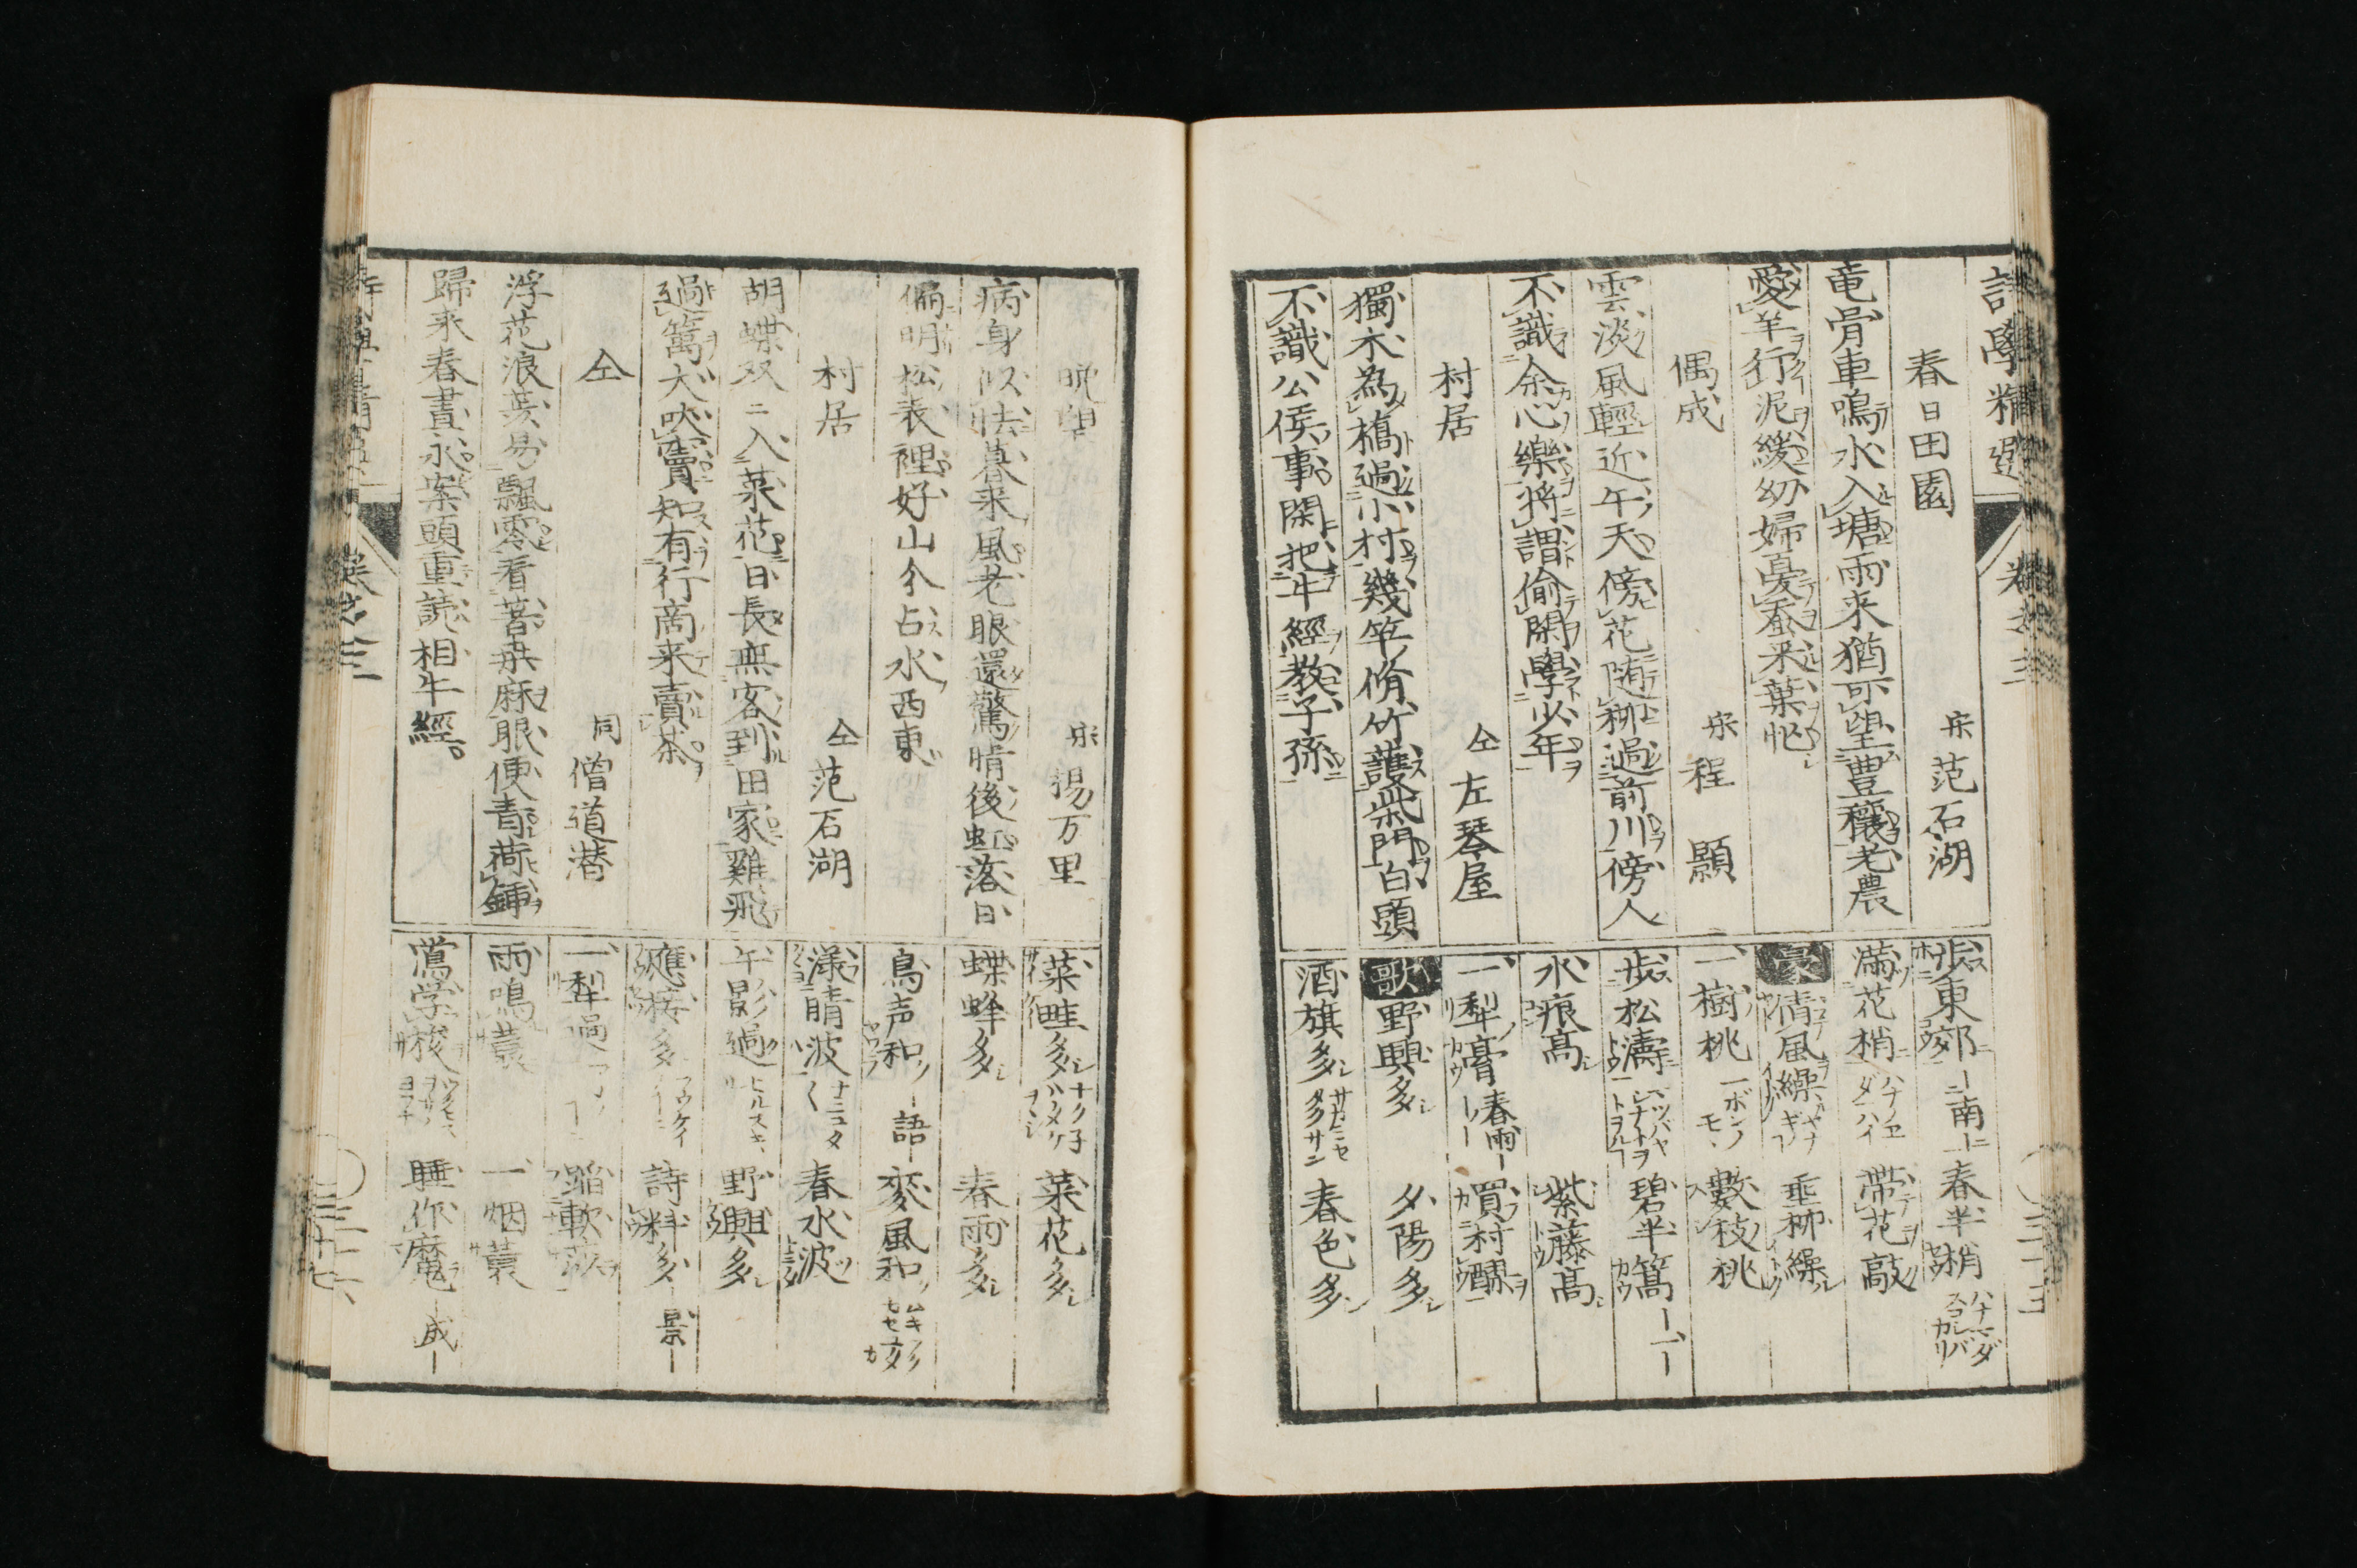 詩學精選 卷之三
春日田園 宋 范石湖
竜骨車鳴水入塘雨来猶可望豊穰老農
愛羊行泥緩幼婦憂蚕采葉忙
偶成 宋 程顥
雲淡風輕近午天傍花随柳過前川傍人
不識余心樂將謂偷閑學少年
村居 仝 左琴屋
獨木為橋過小村幾竿脩竹護柴門白頭
不識公侯事閑把牛經教子孫
步東郊 南 春半梢
満花梢 帶花敲
豪 倩風繰 垂柳繰
一樹桃 一ボンノモヽ 數枝桃
步松濤 碧半篙
水痕髙 紫藤髙
一犁膏 春雨 買村醪
歌 野興多 夕陽多
酒旗多 春色多
晩望 宋 揚万里
病身似怯暮来風老眼還驚晴後虹落日
偏明松表裡好山分占水西東
村居 仝 范石湖
胡蝶双二入菜花日長無客到田家雞飛
過篱犬吠竇知有行商来賣茶
仝 同 僧道潜
浮花浪蕋易飄零看著桒麻眼便青荷鍤
歸来春晝永案頭重読相牛經
菜畦多 菜花多
蝶蜂多 春雨多
鳥声和 語 麥風和
漾晴波 春水波
午影過 野興多
應接多 詩料多 景
一犁過 莎
雨鳴蓑 一烟蓑
鴬学梭 睡作魔 成